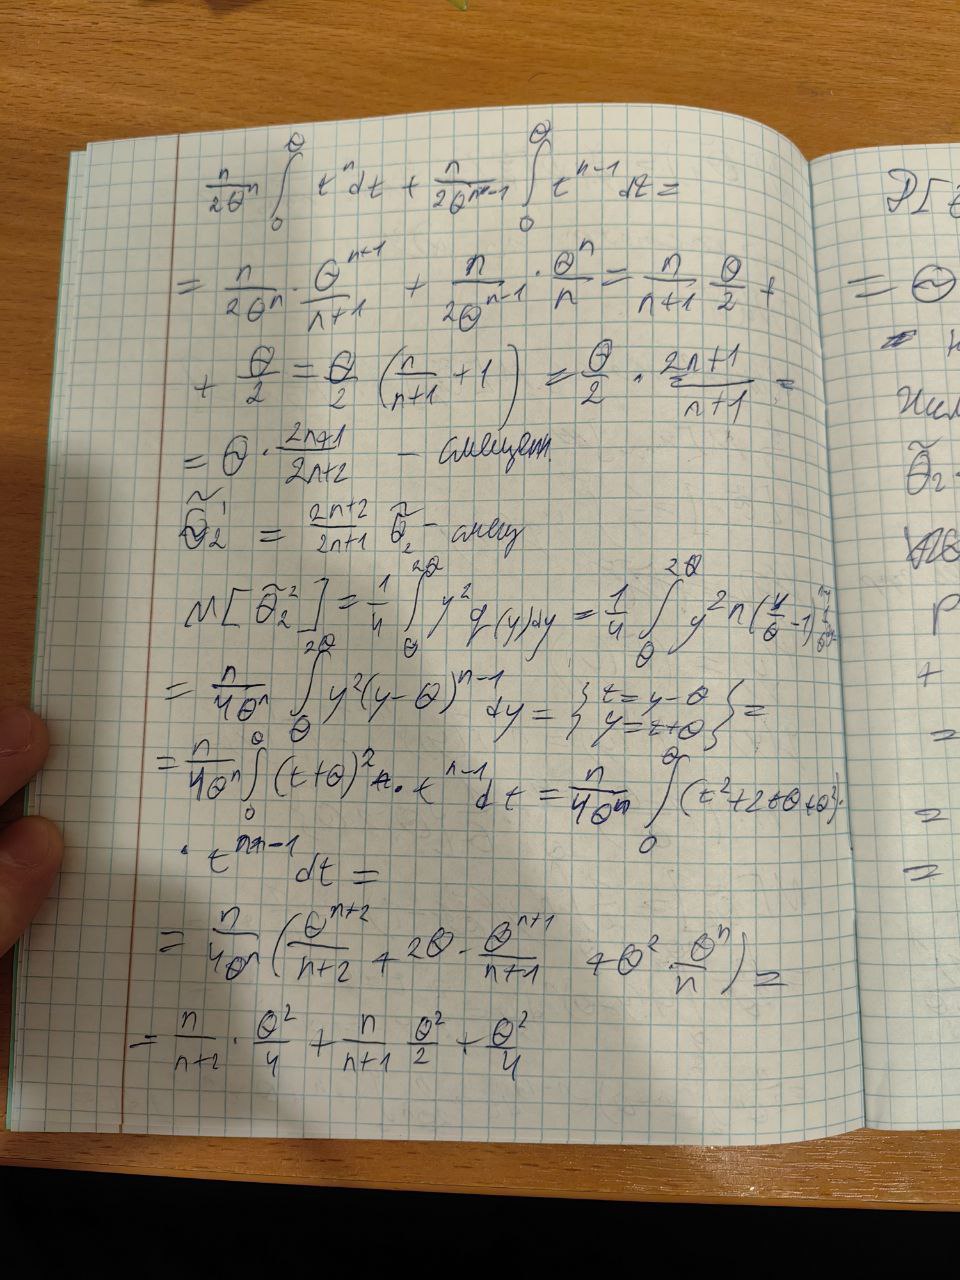 n/(2θⁿ) ∫₀^θ tⁿ dt + n/(2θⁿ⁻¹) ∫₀^θ tⁿ⁻¹ dt =
= n/(2θⁿ) · θⁿ⁺¹/(n+1) + n/(2θⁿ⁻¹) · θⁿ/n = n/(n+1) θ/2 +
+ θ/2 = θ/2 (n/(n+1) + 1) = θ/2 · (2n+1)/(n+1) =
= θ · (2n+1)/(2n+2) – смещенн.
θ̃₂' = (2n+2)/(2n+1) θ̃₂ –
M[θ̃₂²] = 1/4 ∫_θ^2θ y² g(y)dy = 1/4 ∫_θ^2θ y² n(y/θ - 1)
= n/(4θⁿ) ∫_θ^2θ y²(y-θ)ⁿ⁻¹ dy = {t = y-θ y = t+θ} =
= n/(4θⁿ) ∫₀^θ (t+θ)² · tⁿ⁻¹ dt = n/(4θⁿ) ∫₀^θ (t²+2tθ+θ²)·
· tⁿ⁻¹ dt =
= n/(4θⁿ) (θⁿ⁺²/(n+2) + 2θ · θⁿ⁺¹/(n+1) + θ² · θⁿ/n) =
= n/(n+2) · θ²/4 + n/(n+1) θ²/2 + θ²/4
P[
= θ
θ̃₂
P
+
=
=
=